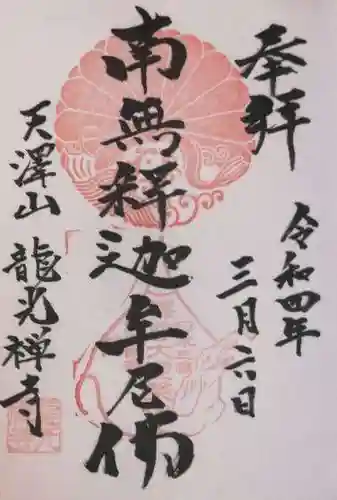 奉拝
令和四年
三月二六日
南無釋迦牟尼佛
天澤山 龍光禅寺